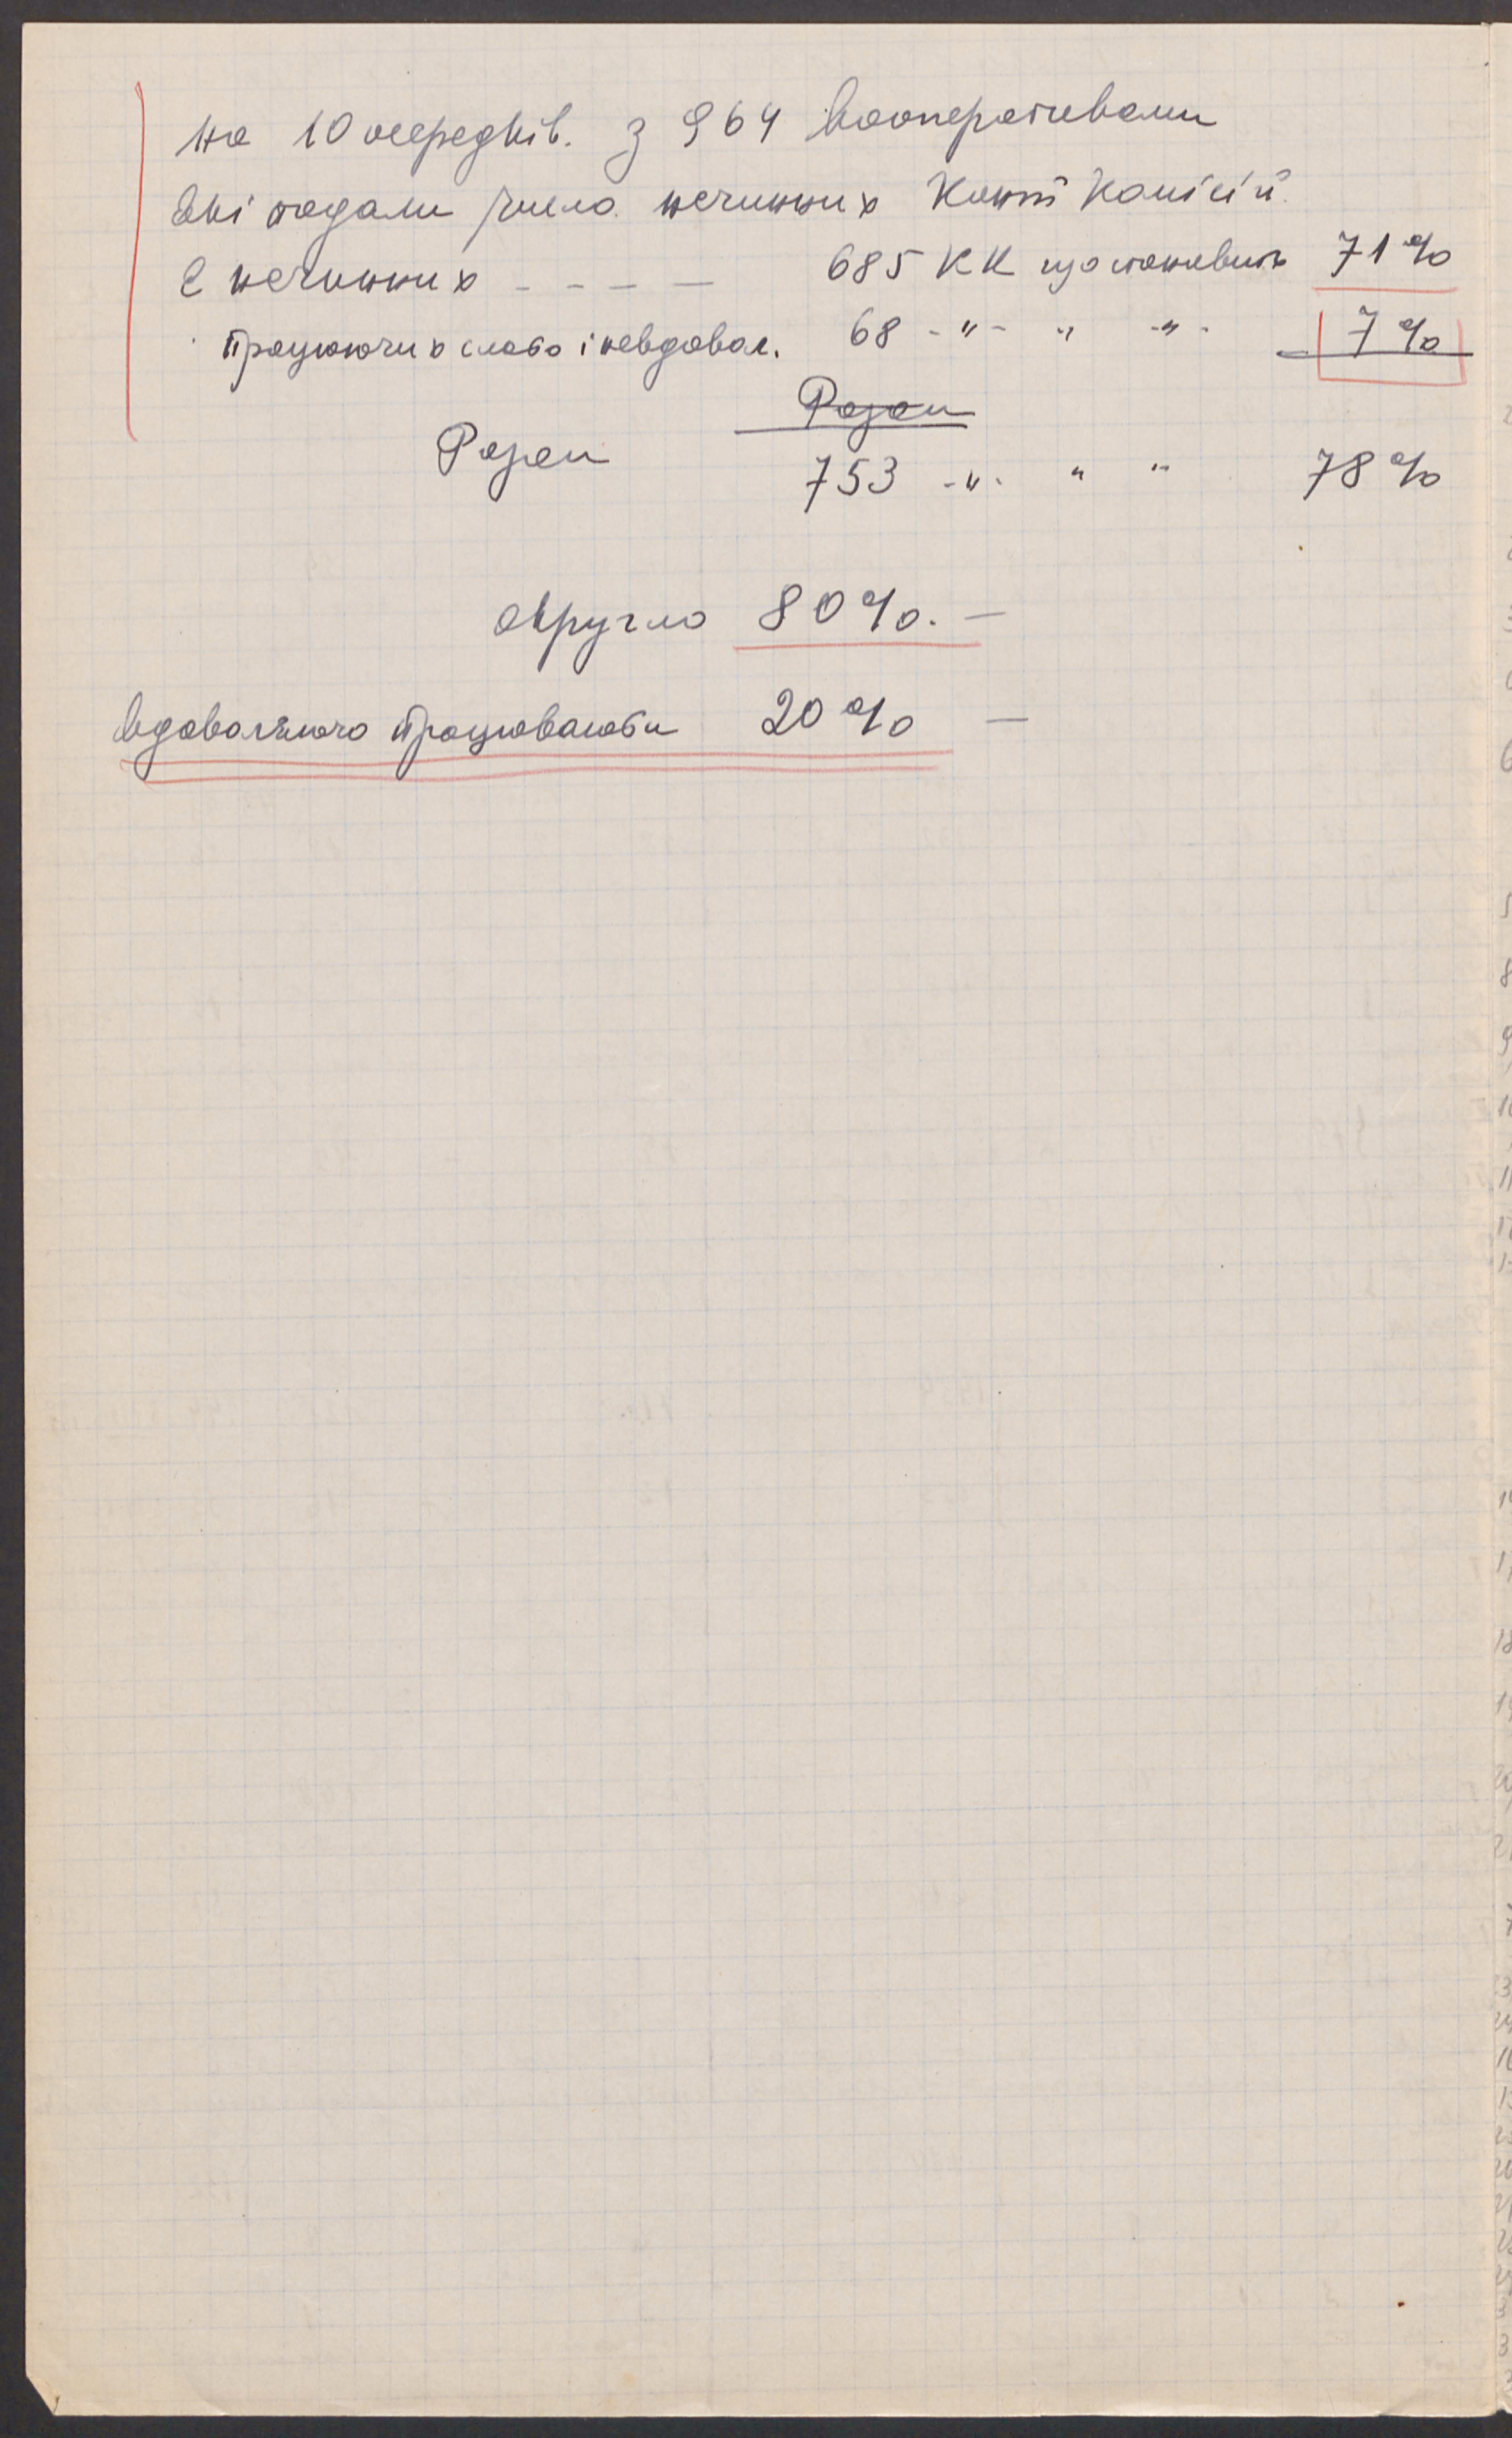 на 10 осередків. з 964 кооперативами
які подали число нечинних Конт Комісій.
Є нечинних - - - - 685 КК що становить 71%
працюючих слабо і невдовол. 68 -"- " -"- 7%
Разом
Разом 753 -"- " " 78%
округло 80%. -
вдоволяючо працювалоби 20% -